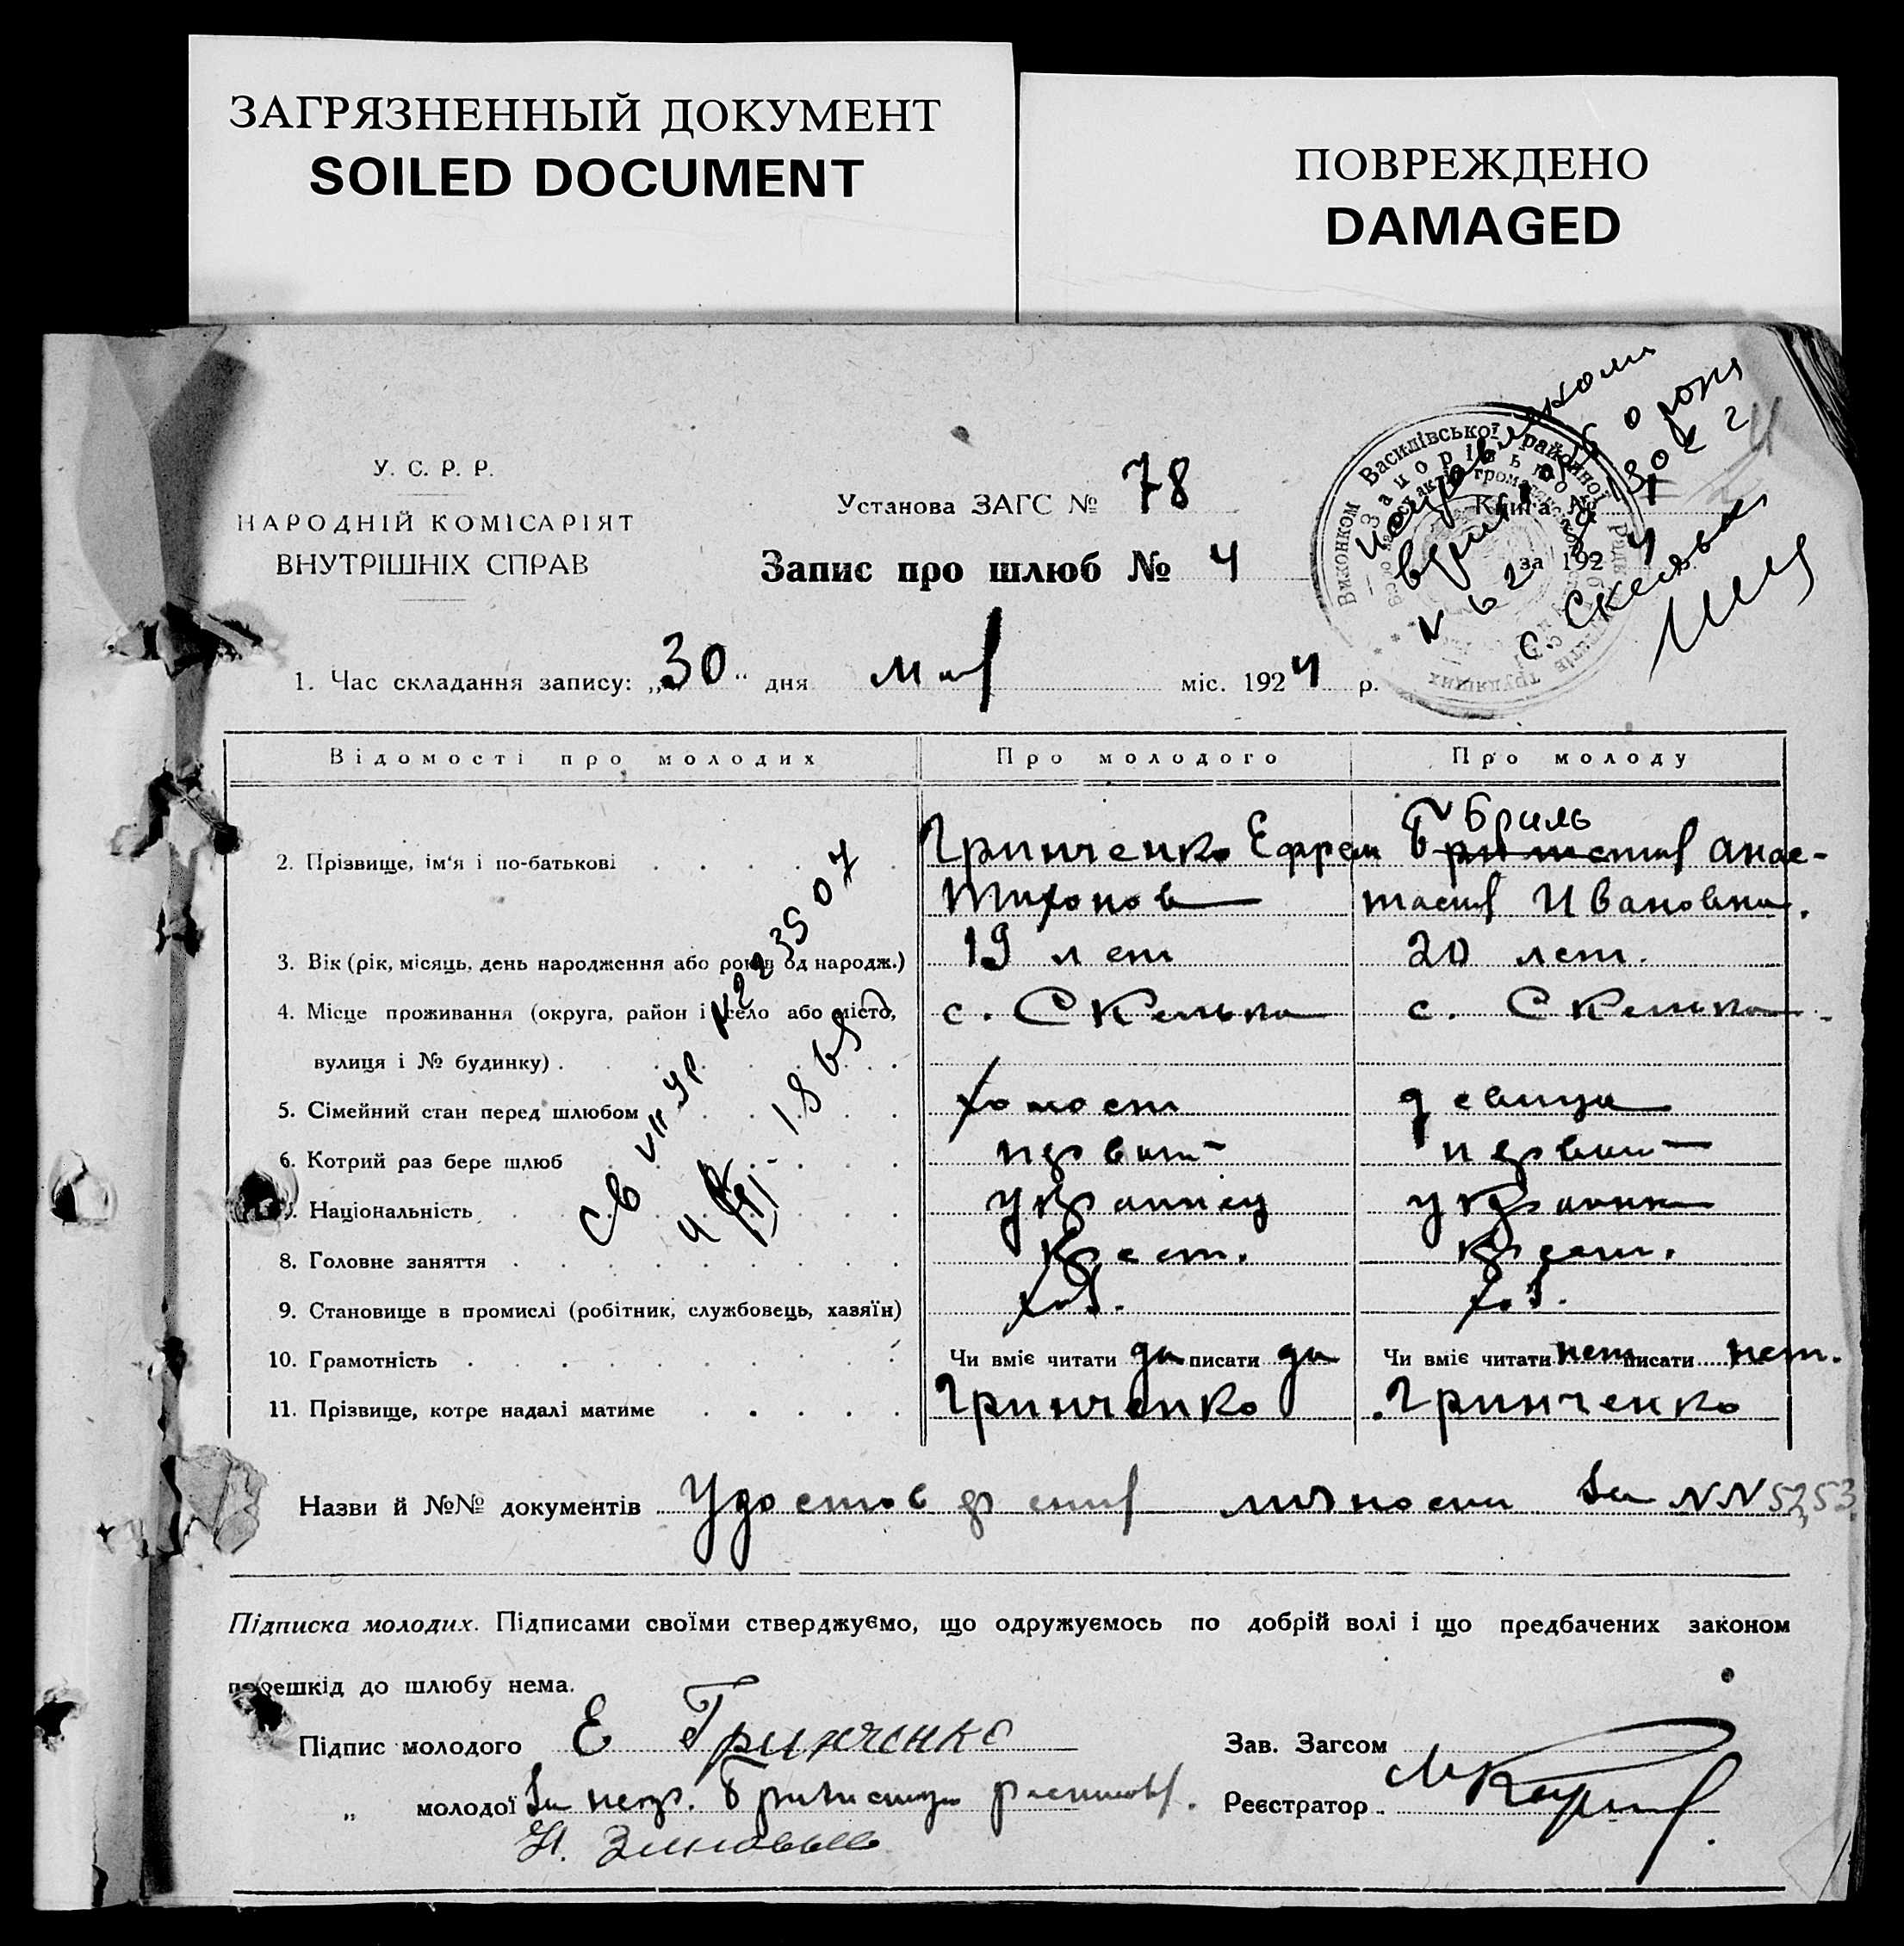 ЗАГРЯЗНЕННЫЙ ДОКУМЕНТ
SOILED DOCUMENT
ПОВРЕЖДЕНО
DAMAGED
У. С. Р. Р.
НАРОДНІЙ КОМІСАРІЯТ
ВНУТРІШНІХ СПРАВ
Установа ЗАГС № 78
Книга № 1
Запис про шлюб № 4
за 1924
с. Скельки
Виконком Василівської районної Ради
1. Час складання запису: „30" дня мая міс. 1924 р.
Відомості про молодих Про молодого Про молоду
Бриль
2. Прізвище, ім'я і по-батькові Гринченко Ефрем Анас-
Тихонов тасия Ивановна.
3. Вік (рік, місяць, день народження або років од народж.) 19 лет 20 лет.
4. Місце проживання (округа, район і село або місто, с. Скелька с. Скелька
вулиця і № будинку)
5. Сімейний стан перед шлюбом холост девица
6. Котрий раз бере шлюб первый первый
7. Національність украинец украинка
8. Головне заняття крест. крест.
9. Становище в промислі (робітник, службовець, хазяїн) хоз. хоз.
10. Грамотність Чи вміє читати да писати да Чи вміє читати нет писати нет.
11. Прізвище, котре надалі матиме Гринченко Гринченко
Св VII УР № 223507
Назви й №№ документів Удостоверения личности за NN 52, 53
Підписка молодих. Підписами своїми стверджуємо, що одружуємось по добрій волі і що предбачених законом
перешкід до шлюбу нема.
Підпис молодого Е Гринченко Зав. Загсом
„ молодої За негр. Реєстратор